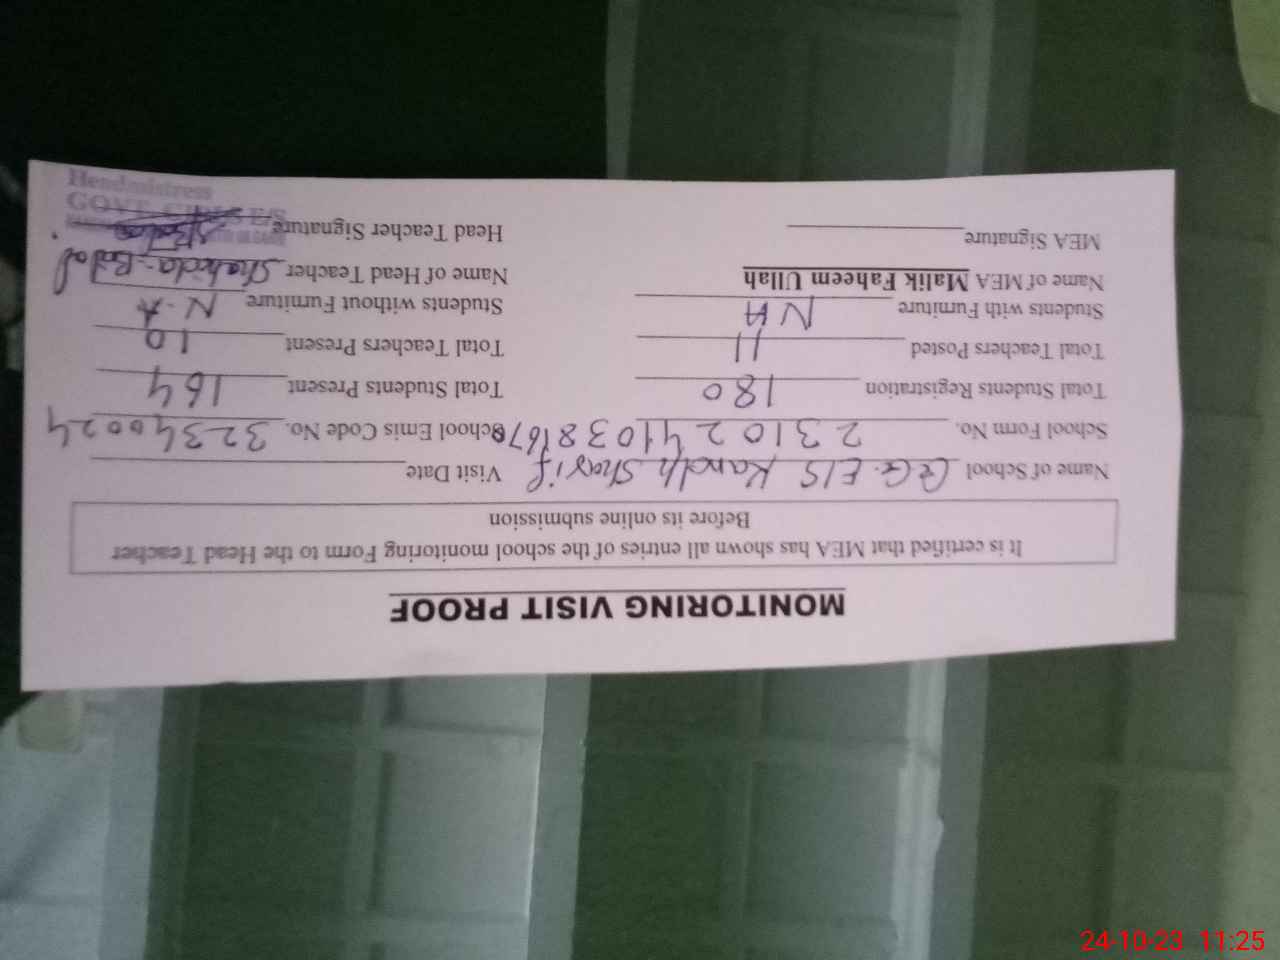 MONITORING VISIT PROOF
It is certified that MEA has shown all entries of the school monitoring Form to the Head Teacher
Before its online submission
Name of School G.G. E/S Kandh Sharif Visit Date
School Form No. 2310241038167 School Emis Code No. 32340024
Total Students Registration 180 Total Students Present 164
Total Teachers Posted 11 Total Teachers Present 10
Students with Furniture NA Students without Furniture N.A
Name of MEA Malik Faheem Ullah Name of Head Teacher Shahida Batol
MEA Signature Head Teacher Signature
GOVT GIRLS E/S
Headmistress
24-10-23 11:25